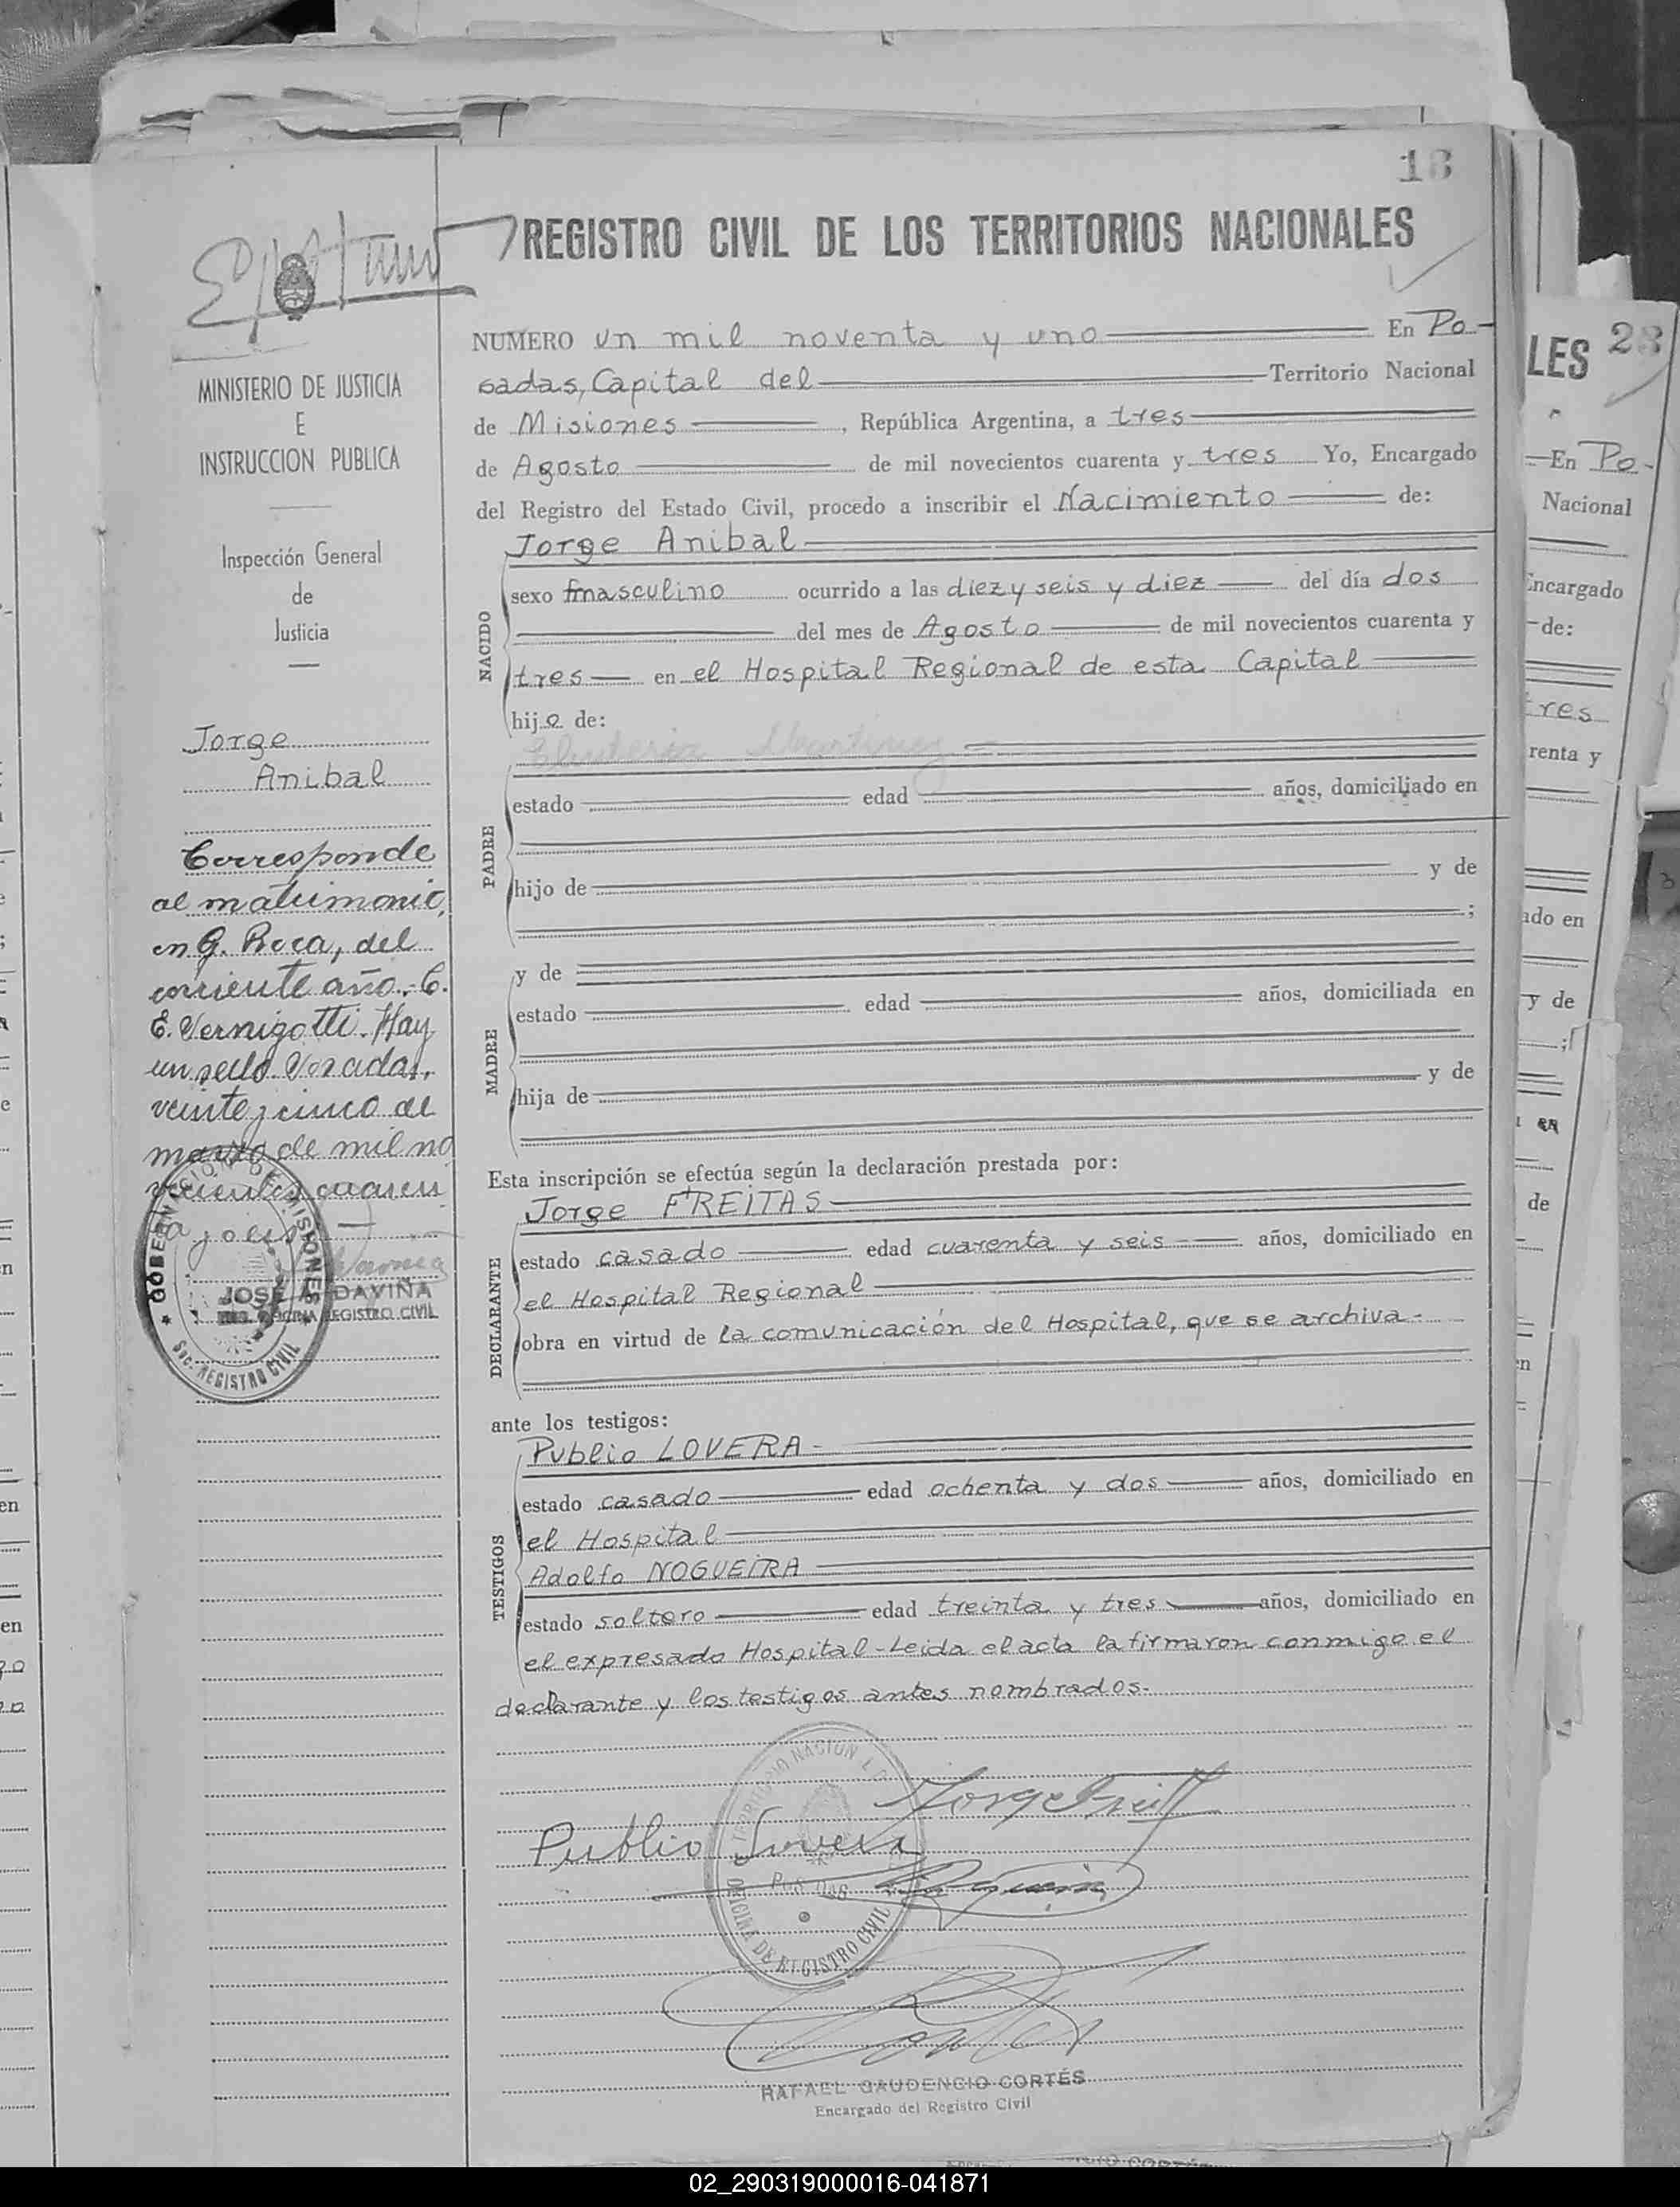 18
REGISTRO CIVIL DE LOS TERRITORIOS NACIONALES
MINISTERIO DE JUSTICIA
E
INSTRUCCION PUBLICA
Inspección General
de
Justicia
Jorge
Anibal
Corresponde
al matrimonio,
en G. Roca, del
corriente año. C.
E. Vernigotti. Hay
un sello. Posadas,
veinte y cinco de
marzo de mil no
vecientos cuaren
GOBERNACION DE MISIONES
Sec. REGISTRO CIVIL
JOSE A. DAVIÑA
OFICINA REGISTRO CIVIL
NUMERO un mil noventa y uno En Po-
sadas, Capital del Territorio Nacional
de Misiones, República Argentina, a tres
de Agosto de mil novecientos cuarenta y tres Yo, Encargado
del Registro del Estado Civil, procedo a inscribir el Nacimiento de:
Jorge Anibal
NACIDO
sexo masculino ocurrido a las diez y seis y diez del día dos
del mes de Agosto de mil novecientos cuarenta y
tres en el Hospital Regional de esta Capital
hijo de:
Martinez
PADRE
estado edad años, domiciliado en
hijo de y de
;
y de
MADRE
estado edad años, domiciliada en
hija de y de
Esta inscripción se efectúa según la declaración prestada por:
Jorge FREITAS
DECLARANTE
estado casado edad cuarenta y seis años, domiciliado en
el Hospital Regional
obra en virtud de la comunicación del Hospital, que se archiva.-
ante los testigos:
Publio LOVERA-
TESTIGOS
estado casado edad ochenta y dos años, domiciliado en
el Hospital
Adolfo NOGUEIRA
estado soltero edad treinta y tres años, domiciliado en
el expresado Hospital-Leida el acta la firmaron conmigo el
declarante y los testigos antes nombrados.-
Jorge Freitas
Publio Lovera
OFICINA DE REGISTRO CIVIL
RAFAEL GAUDENCIO CORTÉS
Encargado del Registro Civil
LES 23
En Po-
Nacional
Encargado
de:
tres
renta y
ado en
y de
;
de
02_290319000016-041871